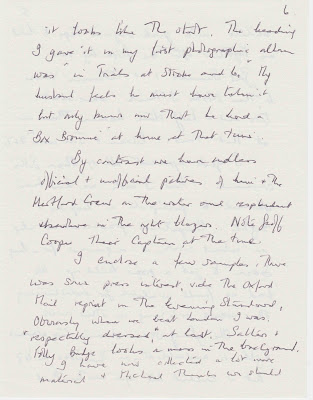 6
it looks like the start. The heading
I gave it in my first photographic album
was "in Trials at Stroke and
husband feels he must have taken it
but only knows now that he had a
"Box Brownie" at home at that time.
By contrast we have endless
official + unofficial pictures of him + the
Hertford Crew on the water and resplendent
elsewhere in the right blazers. Note Geoff
Cooper their Captain at the time.
I enclose a few samples. There
was some press interest, vide the Oxford
Mail reprint in the Evening Standard,
Obviously when we beat London I was
"respectably dressed," at last,
looks a mess in the background.
I have now collected a lot more
material + Michael thinks we should